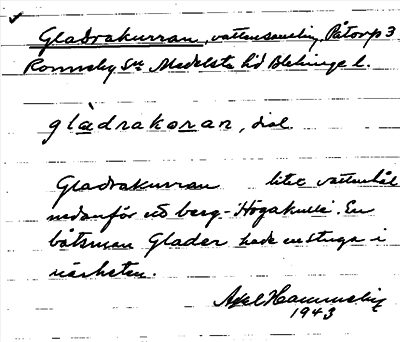 Gladrakurran, vattensamling, Påtorp 3
Ronneby Sn Medelsta hd Blekinge l.
gladrakoran, dial
Gladrakurran litet vattenhål
nedanför ett berg - Högakulle. En
båtsman Glader hade en stuga i
närheten.
Axel
1943